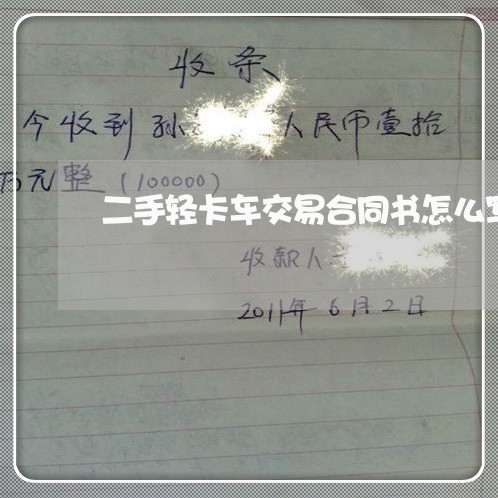 收条
今收到孙 人民币壹拾
万元整(100000)
二手轻卡车交易合同书怎么写
收款人
2011年6月2日